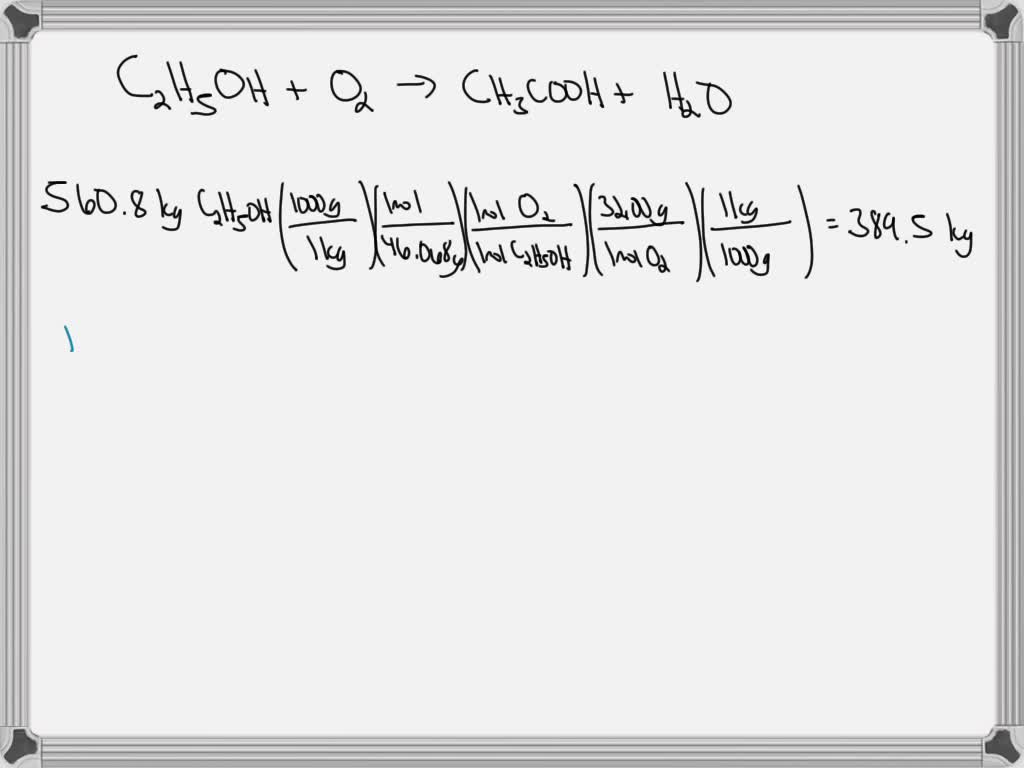 C₂H₅OH + O₂ → CH₃COOH + H₂O
560.8 kg C₂H₅OH (1000g / 1kg) (1mol / 46.068g) (1mol O₂ / 1mol C₂H₅OH) (32.00g / 1mol O₂) (1kg / 1000g) = 389.5 kg